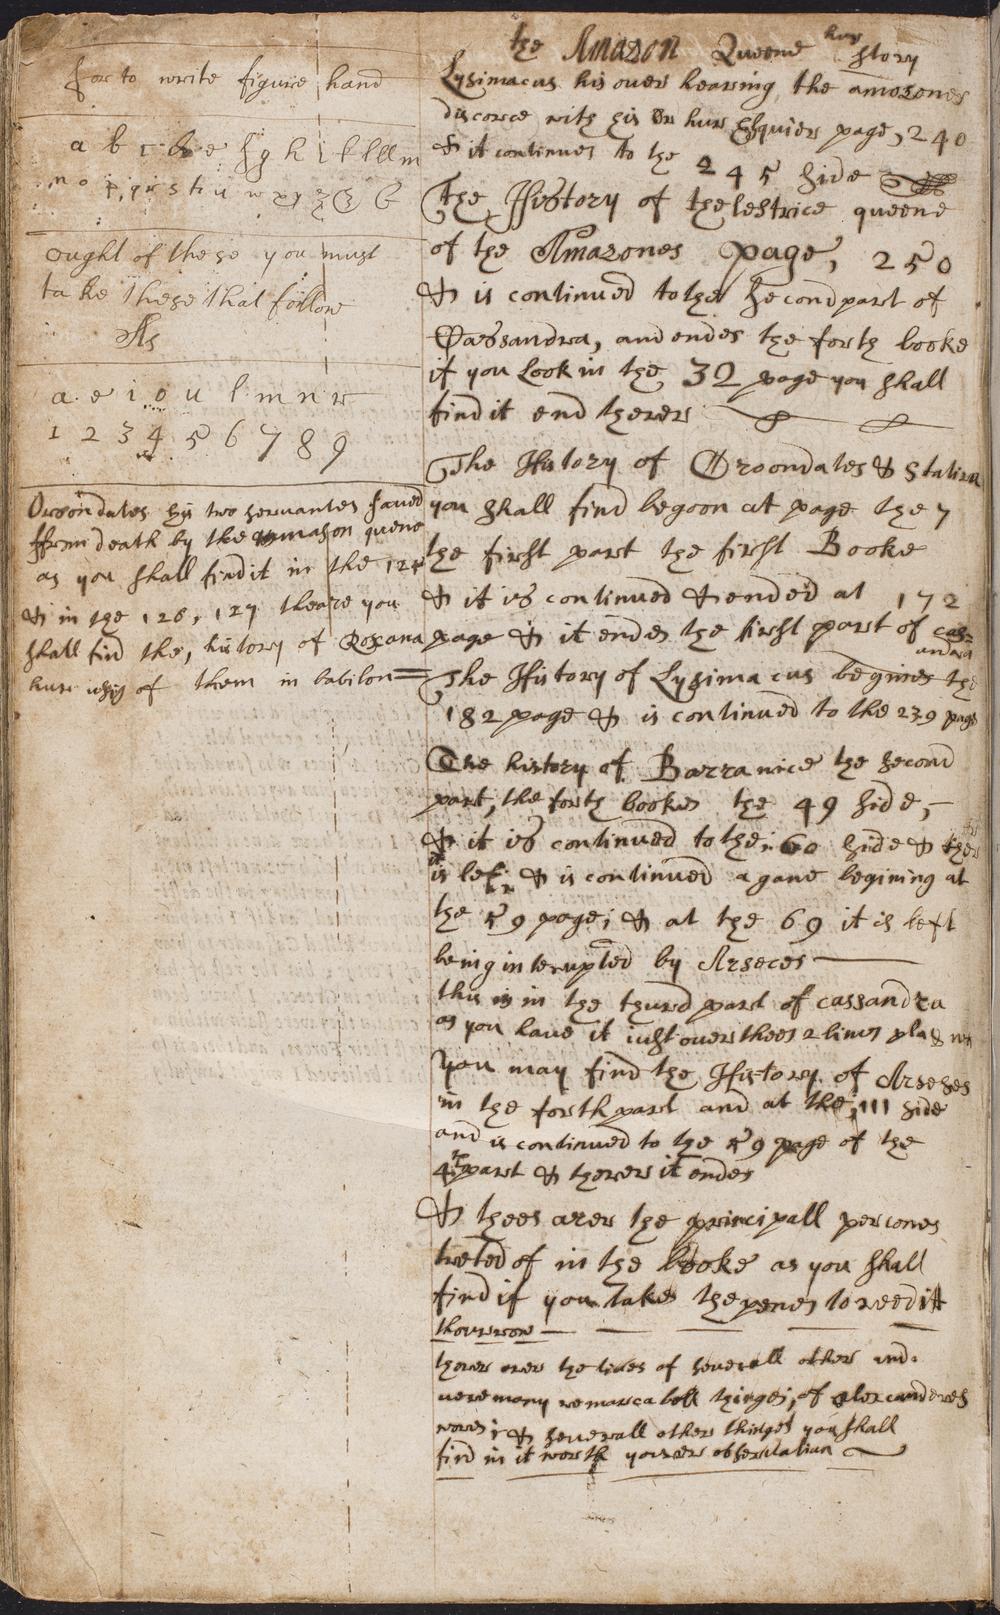 for to write figure hand
a b c d e f g h i k l l l m
n o p, q r s t u w x y z & 6
ought of these you must
take these that follow
As
a. e i o u l. m n r
1 2 3 4 5 6 7 8 9
Oroondates his two servantes saved
ffrom death by the amason quene
as you shall find it in the 124
& in the 126, 127 theare you
shall find the, history of Roxana
hure of them in babilon
the Amazon Queene hur story
Lysimacus his over hearing the amozones
discorce with his or hur Esquier page, 240
& it continues to the 245 side
The History of thelestrice queene
of the Amazones page, 250
& is continued to the second part of
Cassandra, and endes the forth booke
if you Look in the 32 page you shall
find it end therer
The History of Oroondates & Statira
you shall find begoon at page the 7
the first part the first Booke
& it is continued & ended at 172
page & it endes the first part of cas=
andra
The History of Lysimacus begines the
182 page & is continued to the 239 page
The history of Barranice the second
part, the forth bookes the 49 side,
& it is continued to the 60 side & ther
it is lef & is continued agane begining at
the 59 page; & at the 69 it is left
being interupted by Arseces
this is in the thurd part of cassandra
as you have it iust over thees 2 lines
you may find the History of Arseses
in the forth part and at the, 111 side
and is continued to the 59 page of the
4th part & therer it endes
& thees arer the principall persones
treted of in the booke as you shall
find if you take the penes to reed it
thourrow
therer arer the lives of severall other and
vere many remarcabell thinges, of alexanderes
wores & severall other thinges you shall
find in it worth yourer observation